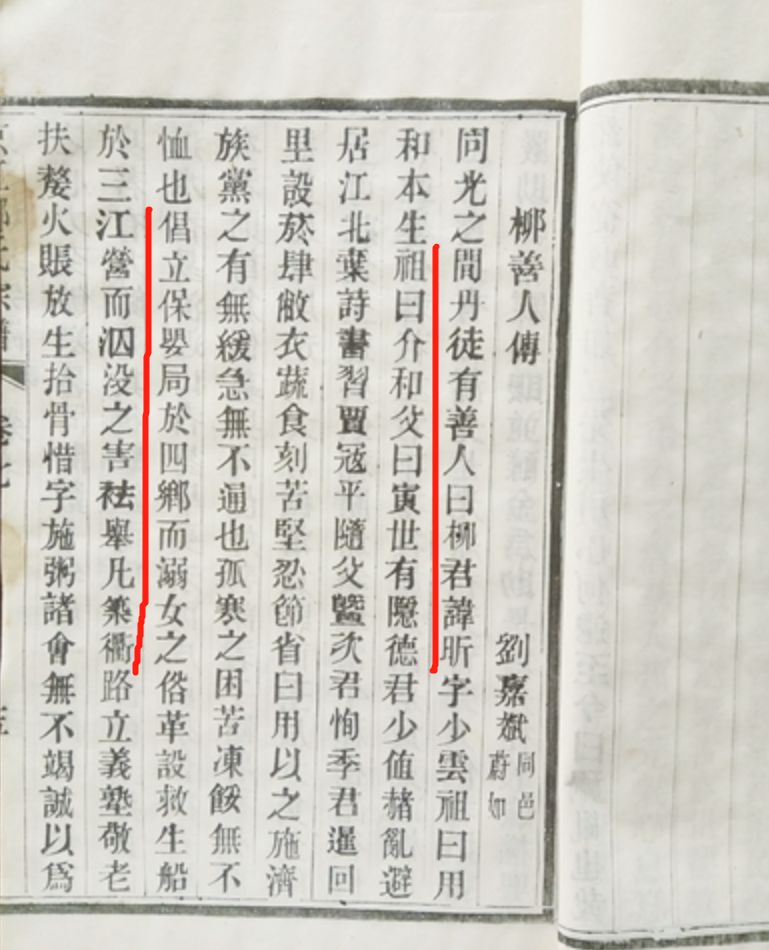 柳善人傳
劉嘉斌 同邑 蔚如
同光之間丹徒有善人曰柳君諱昕字少雲祖曰用
和本生祖曰介和父曰寅世有隱德君少值赭亂避
居江北棄詩書習賈冠平隨父暨次君恂季君暹回
里設菸肆敝衣蔬食刻苦堅忍節省日用以之施濟
族黨之有無緩急無不通也孤寒之困苦凍餒無不
恤也倡立保嬰局於四鄉而溺女之俗革設救生船
於三江營而泅没之害祛舉凡築衢路立義塾敬老
扶嫠火賬放生拾骨惜字施粥諸會無不竭誠以爲
氏宗譜 卷七